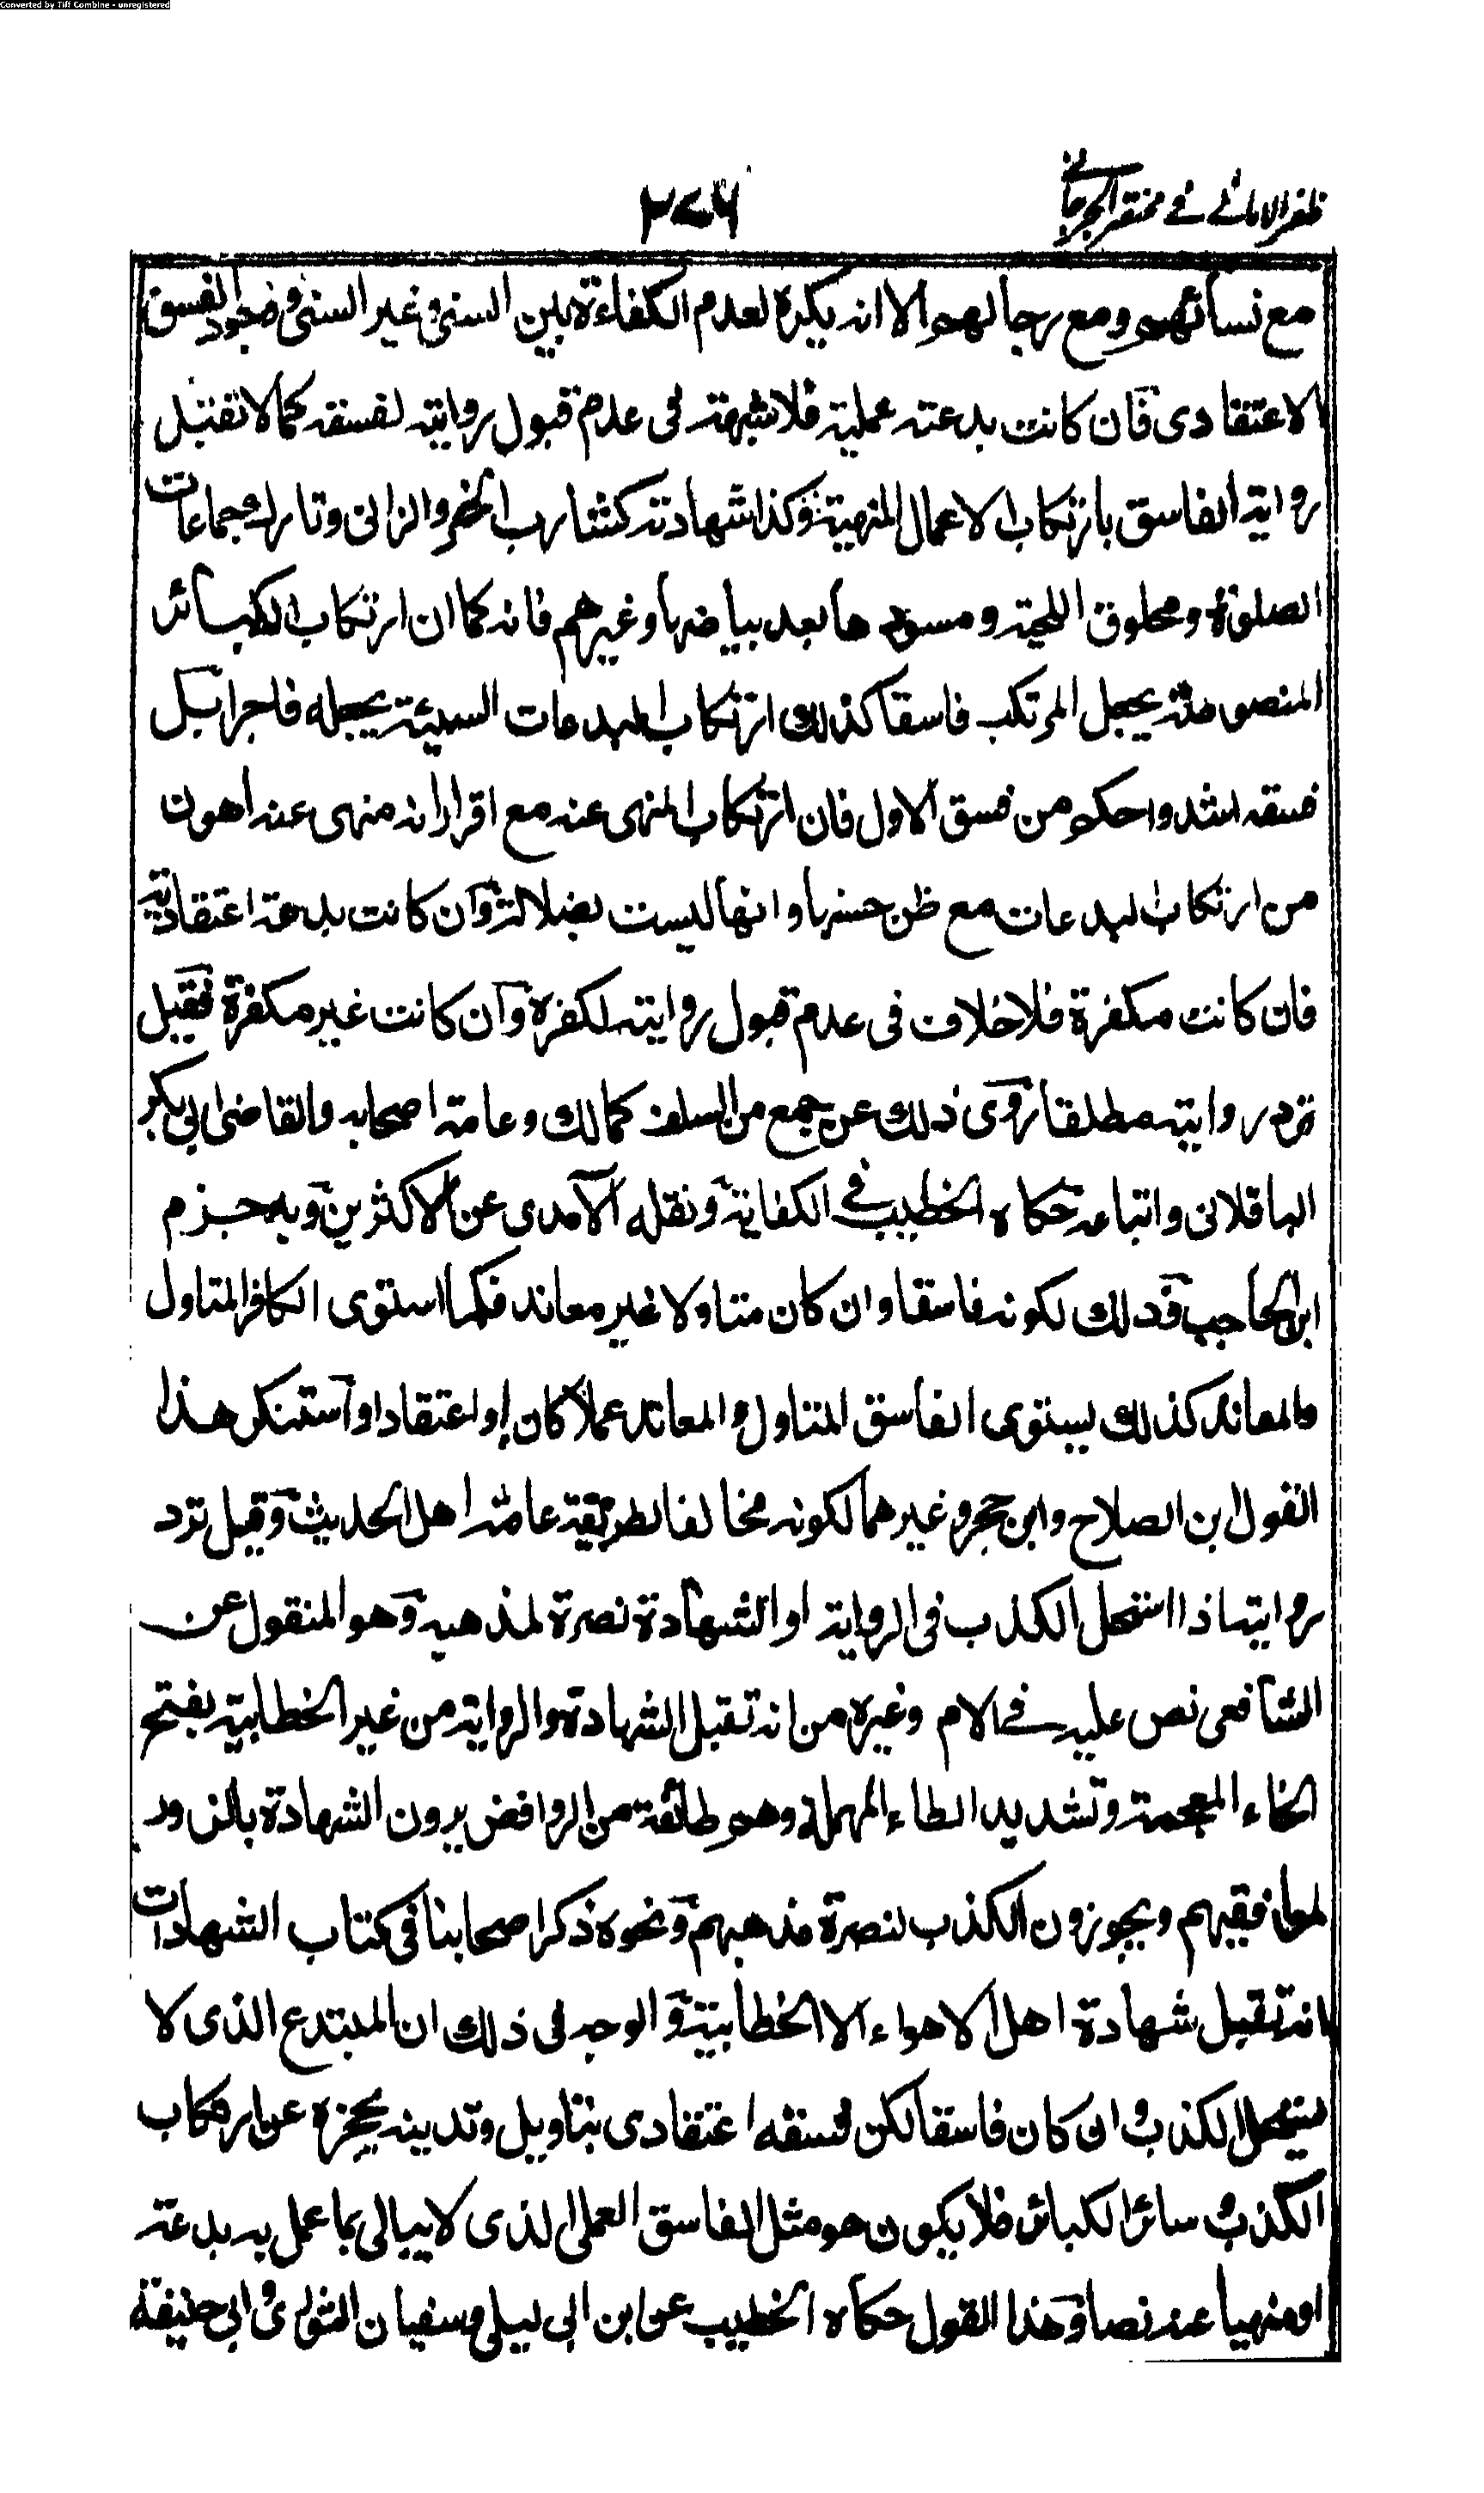 Converted by Tiff Combine - unregistered
ظفر الامانی فی مختصر الجرجانی
۲۷۶
مع نسائهم ومع رجالهم الا انه يكره لعدم الكفاءة بين السنی وغير السنی ووجود الفسق
الاعتقادی فان كانت بدعته عملية فلا شبهة فی عدم قبول روايته لفسقه كما لا تقبل
رواية الفاسق بارتكاب الاعمال المنهية وكذا شهادته كشارب الخمر والزانی وتارك جماعات
الصلوة ومحلوق اللحية ومسود ها بعد بياضها وغيرهم فانه كما ان ارتكاب الكبائر
المنصوصة يجعل المرتكب فاسقا كذلك ارتكاب البدعات السيئة يجعله فاجرا بل
فسقه اشد واحكم من فسق الاول فان ارتكاب المنهی عنه مع اقرار انه منهی عنه اهون
من ارتكاب البدعات مع ظن حسنها وانها ليست بضلالة وان كانت بدعة اعتقادية
فان كانت مكفرة فلا خلاف فی عدم قبول روايته لكفره وان كانت غير مكفرة فقيل
ترد روايته مطلقا روی ذلك عن جمع من السلف كمالك وعامة اصحابه والقاضی ابی بكر
الباقلانی واتباعه حكاه الخطيب فی الكفاية ونقله الآمدی عن الاكثرين وبه جزم
ابن الحاجب وذلك لكونه فاسقا وان كان متاولا غير معاند فكما استوی الكافر المتاول
والمعاند كذلك يستوی الفاسق المتاول والمعاند عملا كان او اعتقادا واستنكر هذا
القول ابن الصلاح وابن حجر وغيرهما لكونه مخالفا لطريقة عامة اهل الحديث وقيل ترد
روايته اذا استحل الكذب فی الرواية او الشهادة نصرة لمذهبه وهو المنقول عن
الشافعی نص عليه فی الام وغيره من انه تقبل الشهادة والرواية من غير الخطابية بفتح
الخاء المعجمة وتشديد الطاء المهملة وهم طائفة من الروافض يرون الشهادة بالزور
لموافقيهم ويجوزون الكذب لنصرة مذهبهم ونحوه ذكر اصحابنا فی كتاب الشهادات
انه تقبل شهادة اهل الاهواء الا الخطابية والوجه فی ذلك ان المبتدع الذی لا
يستحل الكذب وان كان فاسقا لكن فسقه اعتقادی بتاويل وتدينه يحجزه عن ارتكاب
الكذب وسائر الكبائر فلا يكون هو مثل الفاسق العملی الذی لا يبالی بما عمل به بدعة
او منهيا عنه نصا وهذا القول حكاه الخطيب عن ابن ابی ليلی وسفيان الثوری وابی حنيفة